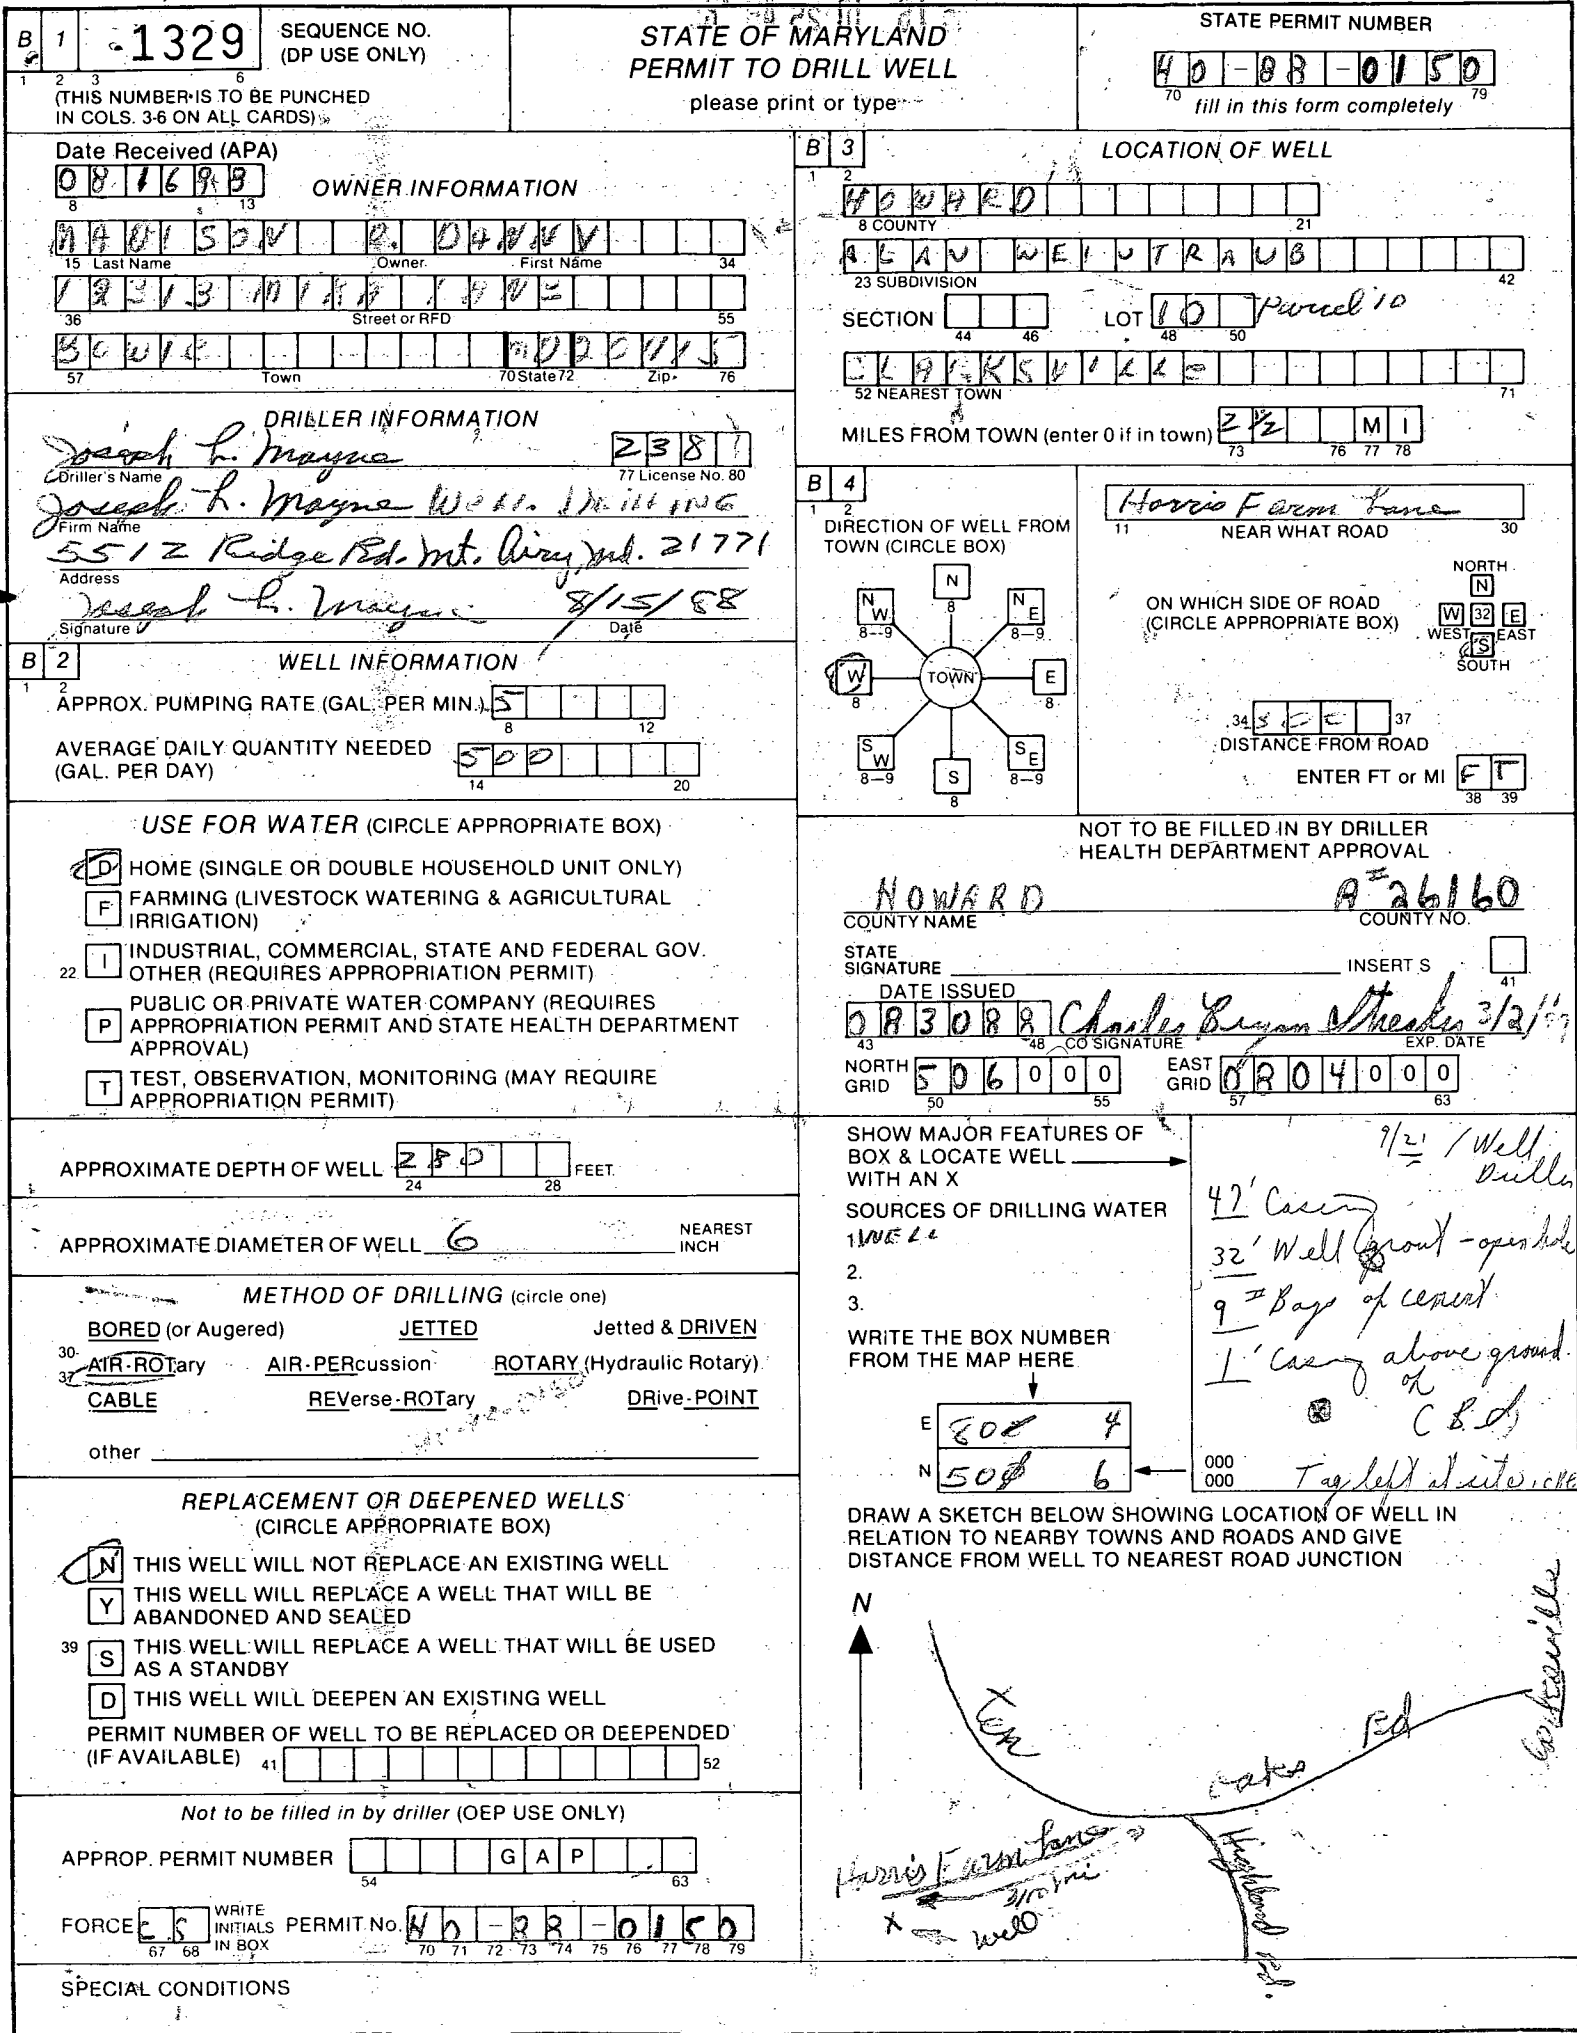 B 1 1329 SEQUENCE NO. (DP USE ONLY)
1 2 3 6
(THIS NUMBER IS TO BE PUNCHED IN COLS. 3-6 ON ALL CARDS)
STATE OF MARYLAND
PERMIT TO DRILL WELL
please print or type
STATE PERMIT NUMBER
HO-88-0150
70 79
fill in this form completely
Date Received (APA)
081688
8 13
OWNER INFORMATION
R. DANNY
15 Last Name Owner First Name 34
36 Street or RFD 55
BOWIE MD 20715
57 Town 70 State 72 Zip 76
DRILLER INFORMATION
Joseph L. Mayne 238
Driller's Name 77 License No. 80
Joseph L. Mayne Well Drilling
Firm Name
5512 Ridge Rd. Mt. Airy, Md. 21771
Address
Joseph L. Mayne 8/15/88
Signature Date
B 2 WELL INFORMATION
1 2
APPROX. PUMPING RATE (GAL. PER MIN.) 5
8 12
AVERAGE DAILY QUANTITY NEEDED (GAL. PER DAY) 500
14 20
USE FOR WATER (CIRCLE APPROPRIATE BOX)
D HOME (SINGLE OR DOUBLE HOUSEHOLD UNIT ONLY)
F FARMING (LIVESTOCK WATERING & AGRICULTURAL
IRRIGATION)
22 I INDUSTRIAL, COMMERCIAL, STATE AND FEDERAL GOV.
OTHER (REQUIRES APPROPRIATION PERMIT)
P PUBLIC OR PRIVATE WATER COMPANY (REQUIRES
APPROPRIATION PERMIT AND STATE HEALTH DEPARTMENT
APPROVAL)
T TEST, OBSERVATION, MONITORING (MAY REQUIRE
APPROPRIATION PERMIT)
APPROXIMATE DEPTH OF WELL 280 FEET
24 28
APPROXIMATE DIAMETER OF WELL 6 NEAREST INCH
METHOD OF DRILLING (circle one)
BORED (or Augered) JETTED Jetted & DRIVEN
30-37 AIR-ROTary AIR-PERcussion ROTARY (Hydraulic Rotary)
CABLE REVerse-ROTary DRive-POINT
other
REPLACEMENT OR DEEPENED WELLS
(CIRCLE APPROPRIATE BOX)
N THIS WELL WILL NOT REPLACE AN EXISTING WELL
Y THIS WELL WILL REPLACE A WELL THAT WILL BE
ABANDONED AND SEALED
39 S THIS WELL WILL REPLACE A WELL THAT WILL BE USED
AS A STANDBY
D THIS WELL WILL DEEPEN AN EXISTING WELL
PERMIT NUMBER OF WELL TO BE REPLACED OR DEEPENDED
(IF AVAILABLE) 41 52
Not to be filled in by driller (OEP USE ONLY)
APPROP. PERMIT NUMBER GAP
54 63
FORCE CS WRITE INITIALS IN BOX PERMIT No. HO-88-0150
67 68 70 71 72 73 74 75 76 77 78 79
SPECIAL CONDITIONS
B 3 LOCATION OF WELL
1 2
HOWARD
8 COUNTY 21
ALAN WEINTRAUB
23 SUBDIVISION 42
SECTION LOT 10 Parcel 10
44 46 48 50
CLARKSVILLE
52 NEAREST TOWN 71
MILES FROM TOWN (enter 0 if in town) 2 1/2 MI
73 76 77 78
B 4
1 2
DIRECTION OF WELL FROM
TOWN (CIRCLE BOX)
N 8
NW 8-9 NE 8-9
W 8 TOWN E 8
SW 8-9 SE 8-9
S 8
Harris Farm Lane
11 NEAR WHAT ROAD 30
ON WHICH SIDE OF ROAD
(CIRCLE APPROPRIATE BOX)
NORTH
N
W 32 E
WEST EAST
S
SOUTH
34 37
DISTANCE FROM ROAD
ENTER FT or MI FT
38 39
NOT TO BE FILLED IN BY DRILLER
HEALTH DEPARTMENT APPROVAL
HOWARD A# 26160
COUNTY NAME COUNTY NO.
STATE SIGNATURE INSERT S
41
DATE ISSUED
083088 Charles Bryan Streaker 3/2/89
43 48 CO SIGNATURE EXP. DATE
NORTH GRID 506000 EAST GRID 0804000
50 55 57 63
SHOW MAJOR FEATURES OF
BOX & LOCATE WELL
WITH AN X
SOURCES OF DRILLING WATER
1 WELL
2.
3.
WRITE THE BOX NUMBER
FROM THE MAP HERE
E 80 4
N 50 6
000
000
9/21 / Well
Driller
47' Casing
32' Well grout - open hole
9 # Bags of cement
1' Casing above ground.
CBS
Tag left at site
DRAW A SKETCH BELOW SHOWING LOCATION OF WELL IN
RELATION TO NEARBY TOWNS AND ROADS AND GIVE
DISTANCE FROM WELL TO NEAREST ROAD JUNCTION
N
Ten Oaks Rd
Clarksville
Harris Farm Lane
3/10 mi
X well
Highland Rd.